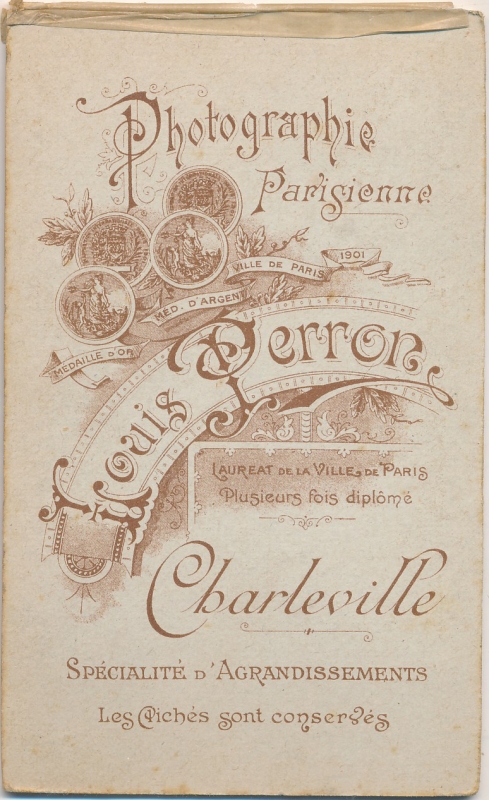 Photographie
Parisienne
1901
VILLE DE PARIS
MED. D'ARGENT
MEDAILLE D'OR
Louis Perron
LAUREAT DE LA VILLE DE PARIS
Plusieurs fois diplômé
Charleville
SPÉCIALITÉ D'AGRANDISSEMENTS
Les Clichés sont conservés